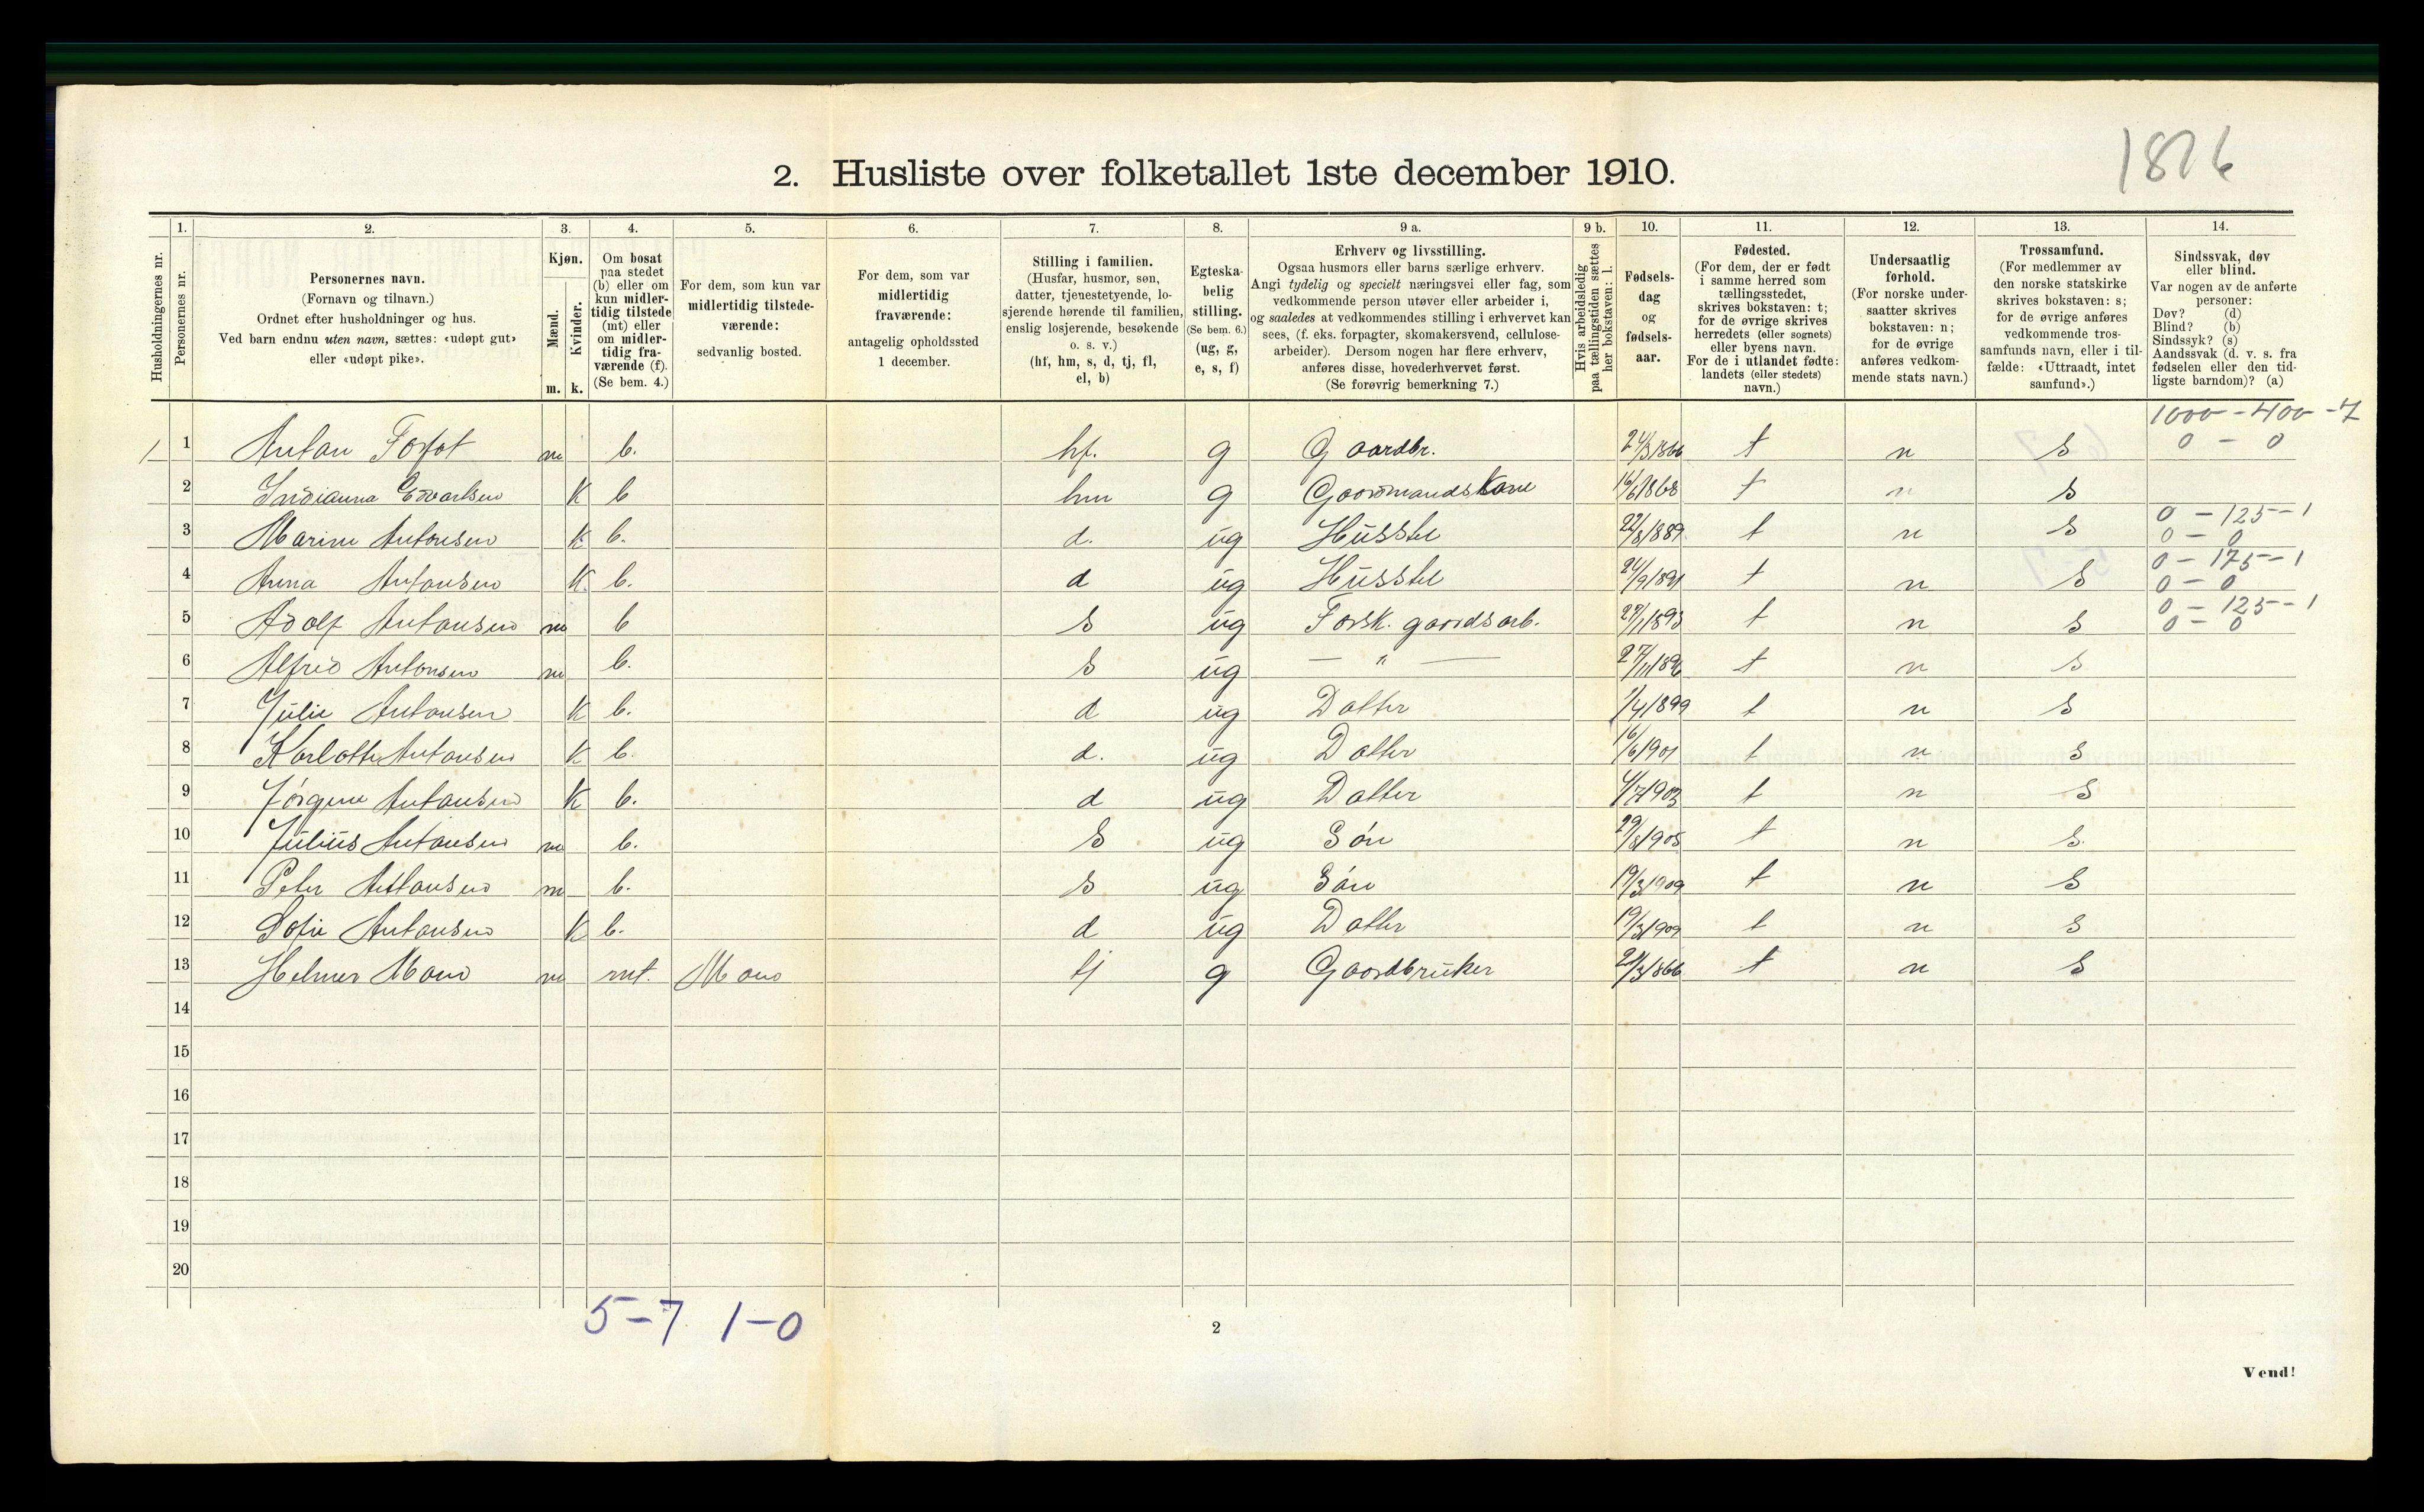 1876
2. Husliste over folketallet 1ste december 1910.
Husholdningernes nr.
1. Personernes nr.
2. Personernes navn.
(Fornavn og tilnavn.)
Ordnet efter husholdninger og hus.
Ved barn endnu uten navn, sættes: «udøpt gut»
eller «udøpt pike».
3. Kjøn.
Mænd. m.
Kvinder. k.
4. Om bosat
paa stedet
(b) eller om
kun midler-
tidig tilstede
(mt) eller
om midler-
tidig fra-
værende (f).
(Se bem. 4.)
5. For dem, som kun var
midlertidig tilstede-
værende:
sedvanlig bosted.
6. For dem, som var
midlertidig
fraværende:
antagelig opholdssted
1 december.
7. Stilling i familien.
(Husfar, husmor, søn,
datter, tjenestetyende, lo-
sjerende hørende til familien,
enslig losjerende, besøkende
o. s. v.)
(hf, hm, s, d, tj, fl,
el, b)
8. Egteska-
belig
stilling.
(Se bem. 6.)
(ug, g,
e, s, f)
9 a. Erhverv og livsstilling.
Ogsaa husmors eller barns særlige erhverv.
Angi tydelig og specielt næringsvei eller fag, som
vedkommende person utøver eller arbeider i,
og saaledes at vedkommendes stilling i erhvervet kan
sees, (f. eks. forpagter, skomakersvend, cellulose-
arbeider). Dersom nogen har flere erhverv,
anføres disse, hovederhvervet først.
(Se forøvrig bemerkning 7.)
9 b. Hvis arbeidsledig
paa tællingstiden sættes
her bokstaven: l.
10. Fødsels-
dag
og
fødsels-
aar.
11. Fødested.
(For dem, der er født
i samme herred som
tællingsstedet,
skrives bokstaven: t;
for de øvrige skrives
herredets (eller sognets)
eller byens navn.
For de i utlandet fødte:
landets (eller stedets)
navn.)
12. Undersaatlig
forhold.
(For norske under-
saatter skrives
bokstaven: n;
for de øvrige
anføres vedkom-
mende stats navn.)
13. Trossamfund.
(For medlemmer av
den norske statskirke
skrives bokstaven: s;
for de øvrige anføres
vedkommende tros-
samfunds navn, eller i til-
fælde: «Uttraadt, intet
samfund».)
14. Sindssvak, døv
eller blind.
Var nogen av de anførte
personer:
Døv? (d)
Blind? (b)
Sindssyk? (s)
Aandssvak (d. v. s. fra
fødselen eller den tid-
ligste barndom)? (a)
1000 - 400 - 7
1 1 Anton Forfot m b. hf. g Gaardbr. 24/3 1866 t n s 0 - 0
2 Indianna Edvartsen K b hm g Gaardmandskone 16/6 1868 t n s
0 - 125 - 1
3 Marine Antonsen K b. d. ug Husstel 22/8 1889 t n s 0 - 0
0 - 175 - 1
4 Anna Antonsen K. b. d ug Husstel 24/9 1891 t n s 0 - 0
0 - 125 - 1
5 Adolf Antonsen m b s ug Forsk. gaardsarb. 27/1 1893 t n s 0 - 0
6 Alfred Antonsen m b. s ug — " — 27/11 1896 t n s
7 Julie Antonsen K b. d ug Datter 1/4 1899 t n s
8 Karlotte Antonsen K b. d. ug Datter 16/6 1901 t n s
9 Jørgine Antonsen K b. d ug Datter 4/7 1903 t n s
10 Julius Antonsen m b. s ug Søn 29/8 1905 t n s.
11 Peter Antonsen m b. s ug Søn 19/3 1909 t n s
12 Sofie Antonsen K b. d ug Datter 19/3 1909 t n s
13 Helmer Moan m mt. Moan tj g Gaardbruker 21/3 1866 t n s
14
15
16
17
18
19
20
5-7 1-0
2
Vend!